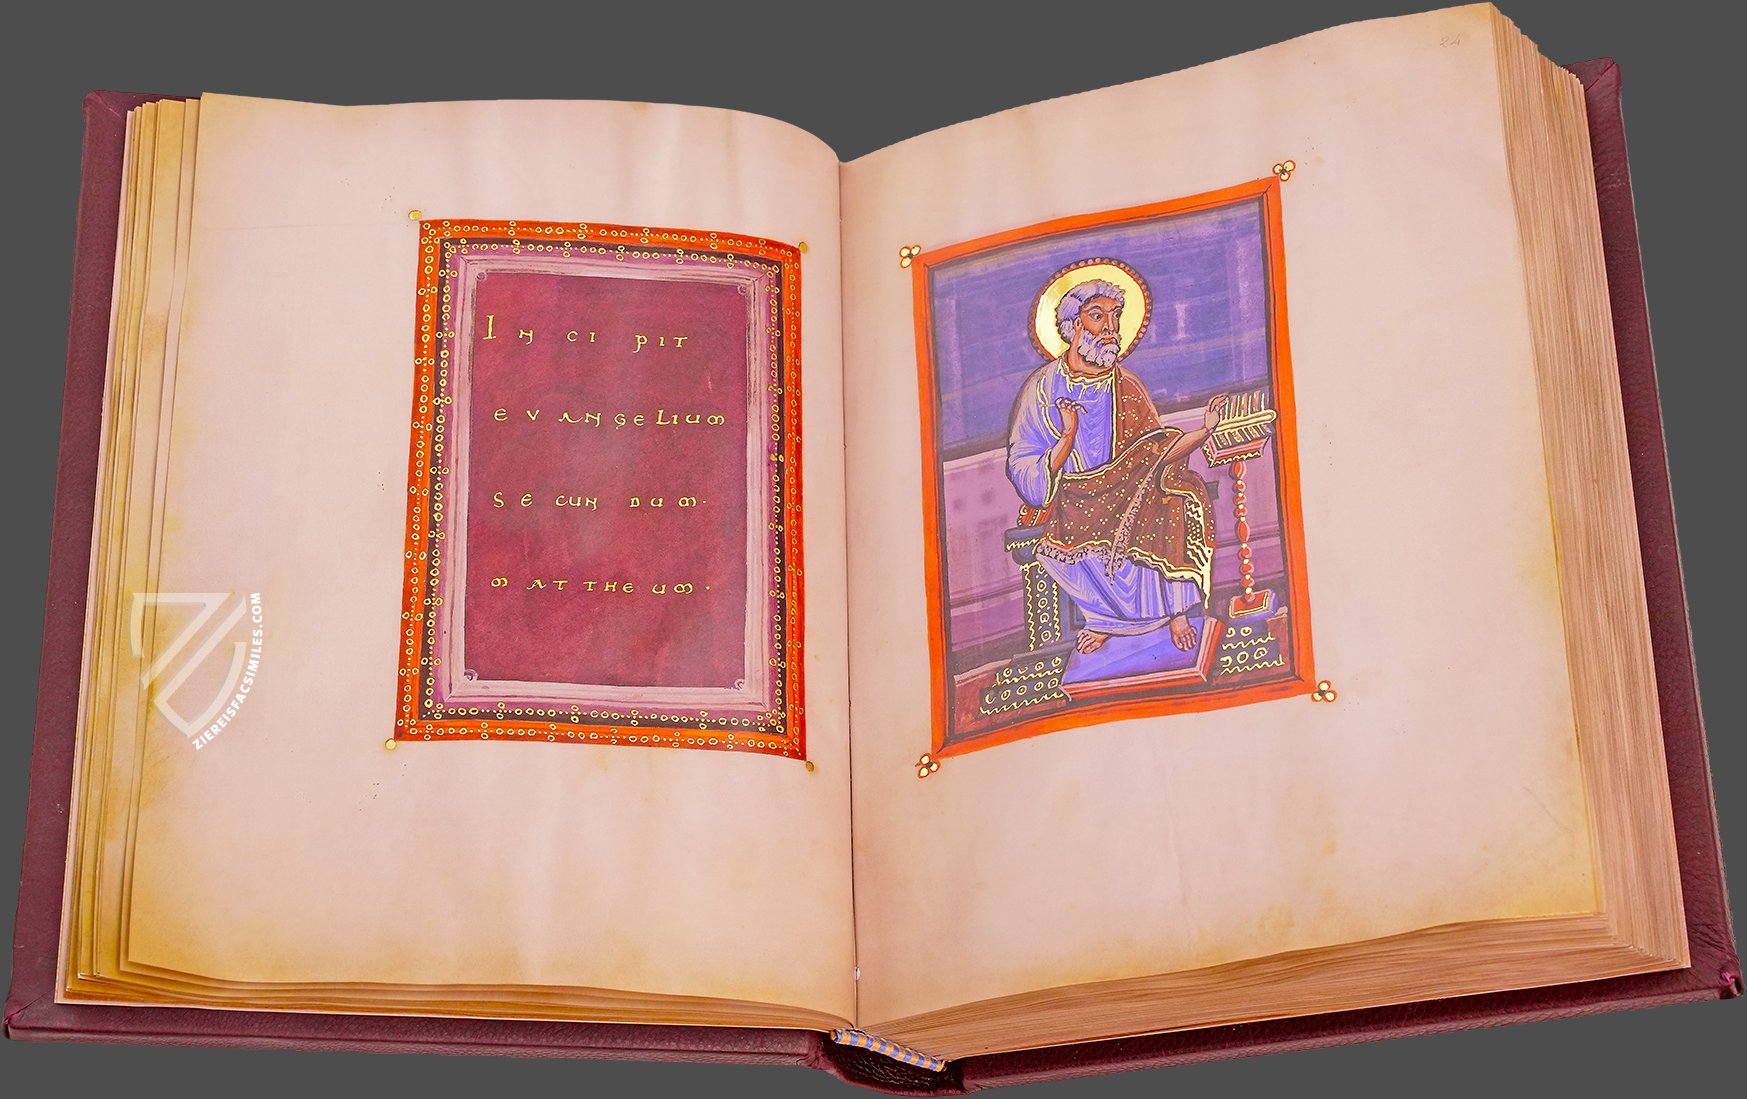 IN CI PIT
E VANGELIUM
SE CUN DUM·
MAT THEUM·
24
ZIEREISFACSIMILES.COM